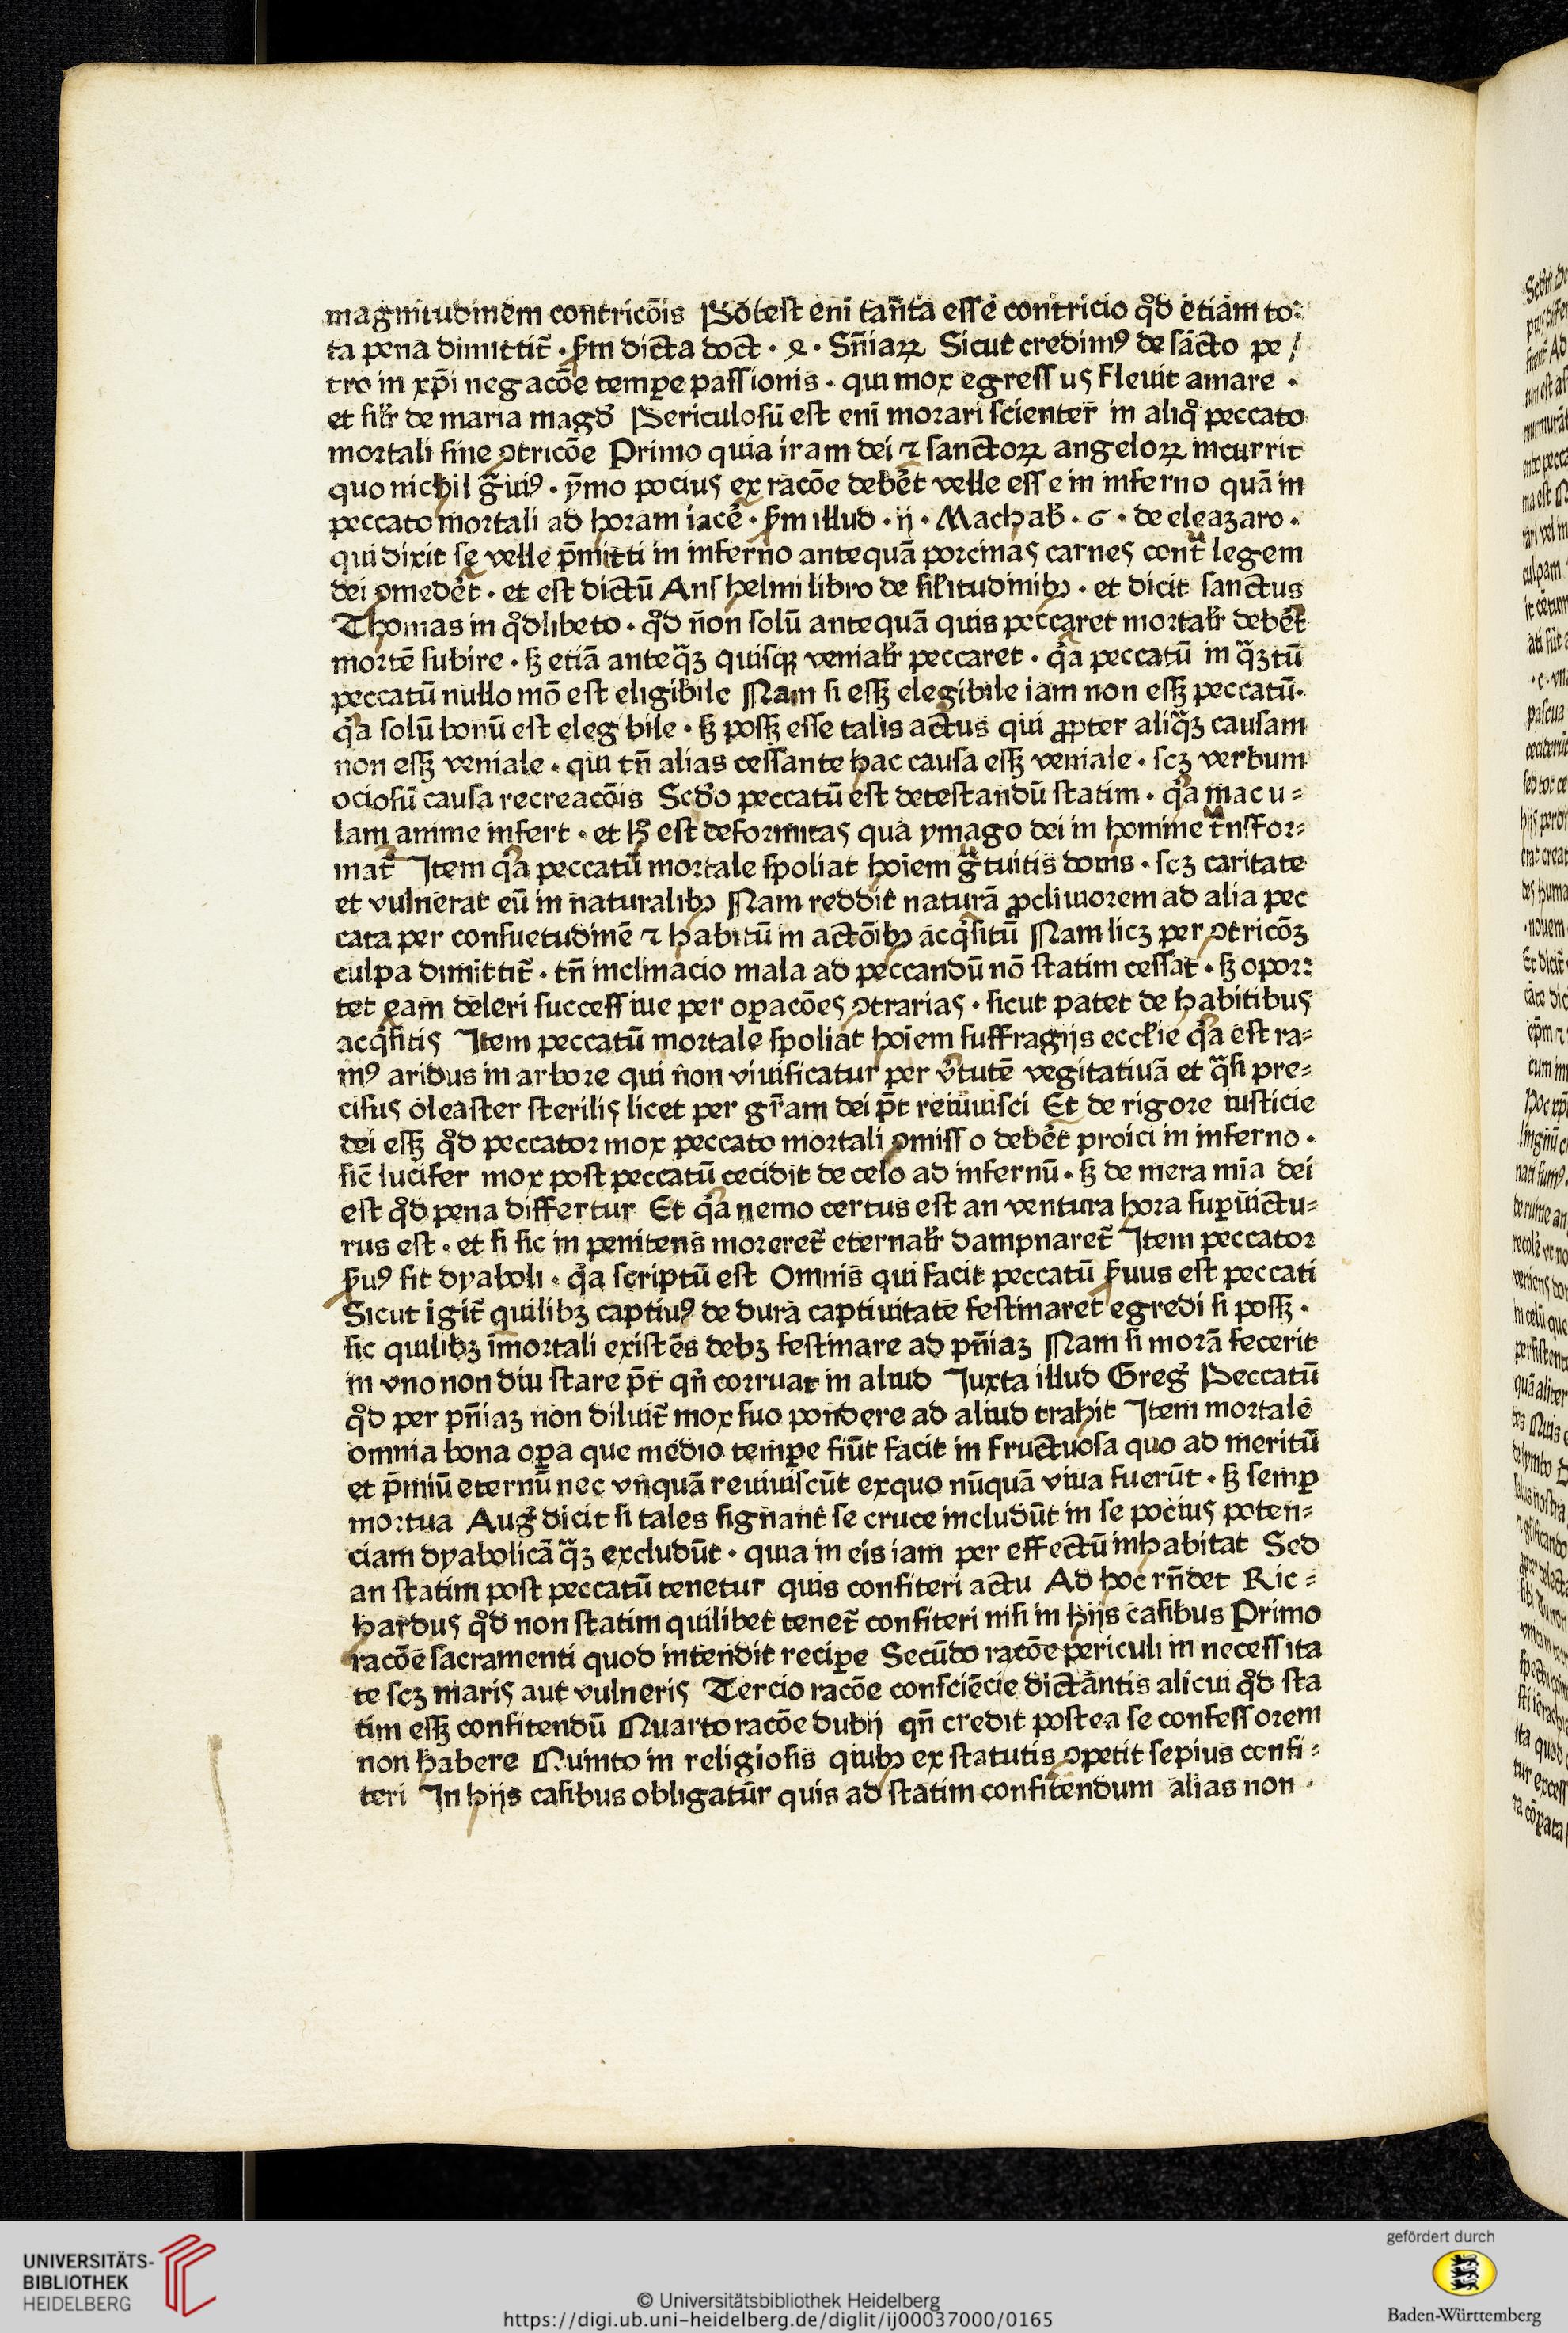 magnitudinem contricōis Potest enī tan̄ta esse contricio qͦd etiam to:
ta pena dimittit᷑ · ẜm dicta doct · 4 · Sn̄iaꝝ Sicut credimꝰ de sācto pe /
tro in xp̄i negacōe tempe passionis · qui mox egressus fleuit amare ·
et silr̄ de maria magd̄ Periculosū est enī morari scienter in aliqͦ peccato
mortali sine ꝯtricōe Primo quia iram dei ⁊ sanctoꝝ angeloꝝ incurrit
quo nichil gͣuiꝰ · ymo pocius ex racōe debet velle esse in inferno quā in
peccato mortali ad horam iacē · ẜm illud · ij · Machab · 6 · de eleazaro ·
qui dixit se velle p̄mitti in inferno antequā porcinas carnes contͣ legem
dei ꝯmedet · et est dictū Anshelmi libro de sil̄itudinibꝫ · et dicit sanctus
Thomas in qͦdlibeto · qͦd non solū antequā quis peccaret mortalr̄ debet
mortē subire · sꝫ etiā anteqͣꝫ quisqꝫ venialr̄ peccaret · qͣa peccatū in qͣꝫtū
peccatū nullo mō est eligibile Nam si essꝫ elegibile iam non essꝫ peccatū ·
qͣa solū bonū est elegbile · sꝫ possꝫ esse talis actus qui ꝓpter aliqͣꝫ causam
non essꝫ veniale · qui tn̄ alias cessante hac causa essꝫ veniale · scꝫ verbum
ociosū causa recreacōis Scd̄o peccatū est detestandū statim · qͣa macu=
lam anime infert · et hͦ est deformitas qua ymago dei in homine tͣnsfor=
mat᷑ Item qͣa peccatū mortale spoliat hoīem gͣtuitis donis · scꝫ caritate
et vulnerat eū in naturalibꝫ Nam reddit naturā ꝓcliuiorem ad alia pec
cata per consuetudinē ⁊ habitū in actōibꝫ acqͥsitū Nam licꝫ per ꝯtricōꝫ
culpa dimittit᷑ · tn̄ inclinacio mala ad peccandū nō statim cessat · sꝫ opor:
tet eam deleri successiue per opacōes ꝯtrarias · sicut patet de habitibus
acqͥsitis Item peccatū mortale spoliat hoīem suffragijs eccl̄ie qͣa est ra=
mꝰ aridus in arbore qui non viuificatur per vͥtutē vegitatiuā et qͣsi pre=
cisus oleaster sterilis licet per gr̄am dei pt̄ reuiuisci Et de rigore iusticie
dei essꝫ qͦd peccator mox peccato mortali ꝯmisso debet proici in inferno ·
sic̄ lucifer mox post peccatū cecidit de celo ad infernū · sꝫ de mera mīa dei
est qͦd pena differtur Et qͣa nemo certus est an ventura hora supuictu=
rus est · et si sic in penitens moreret᷑ eternalr̄ dampnaret᷑ Item peccator
ẜuꝰ fit dyaboli · qͣa scriptū est Omnis qui facit peccatū ẜuus est peccati
Sicut igit᷑ quilibꝫ captiuꝰ de dura captiuitate festinaret egredi si possꝫ ·
sic quilibꝫ īmortali existēs debꝫ festinare ad pn̄iaꝫ Nam si morā fecerit
in vno non diu stare pt̄ qn̄ corruat in aliud Iuxta illud Greg Peccatū
qͦd per pn̄iaꝫ non diluit᷑ mox suo pondere ad aliud trahit Item mortale
omnia bona opa que medio tempe fiūt facit in fructuosa quo ad meritū
et p̄miū eternū nec vnquā reuiuiscūt exquo nūquā viua fuerūt · sꝫ semp
mortua Aug dicit si tales signant se cruce includūt in se pocius poten=
ciam dyabolicā qͣꝫ excludūt · quia in eis iam per effectū inhabitat Sed
an statim post peccatū tenetur quis confiteri actu Ad hoc rn̄det Ric=
hardus qͦd non statim quilibet tenet᷑ confiteri nisi in hijs casibus Primo
racōe sacramenti quod intendit recipe Secūdo racōe periculi in necessita
te scꝫ maris aut vulneris Tercio racōe consciēcie dictantis alicui qͦd sta
tim essꝫ confitendū Quarto racōe dubij qn̄ credit postea se confessorem
non habere Quinto in religiosis quibꝫ ex statutis ꝯpetit sepius confi=
teri In hijs casibus obligatur quis ad statim confitendum alias non ·
UNIVERSITÄTS-
BIBLIOTHEK
HEIDELBERG
© Universitätsbibliothek Heidelberg
https://digi.ub.uni-heidelberg.de/diglit/ij00037000/0165
gefördert durch
Baden-Württemberg